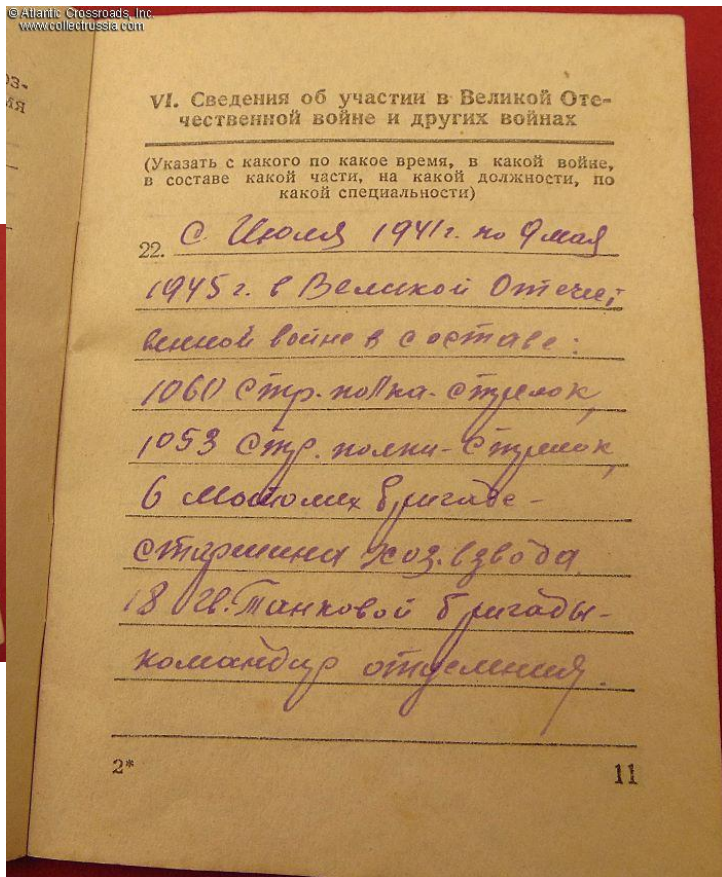 © Atlantic Crossroads, Inc.
www.collectrussia.com
оз-
мя
VI. Сведения об участии в Великой Оте-
чественной войне и других войнах
(Указать с какого по какое время, в какой войне,
в составе какой части, на какой должности, по
какой специальности)
22. С Июля 1941 г. по 9 мая
1945 г. в Великой Отечест
венной войне в составе:
1060 стр. полка - стрелок,
1053 стр. полка - стрелок,
6 бригаде -
старшина хоз. взвода
18 Гв. Танковой бригады -
командир отделения.
2*
11